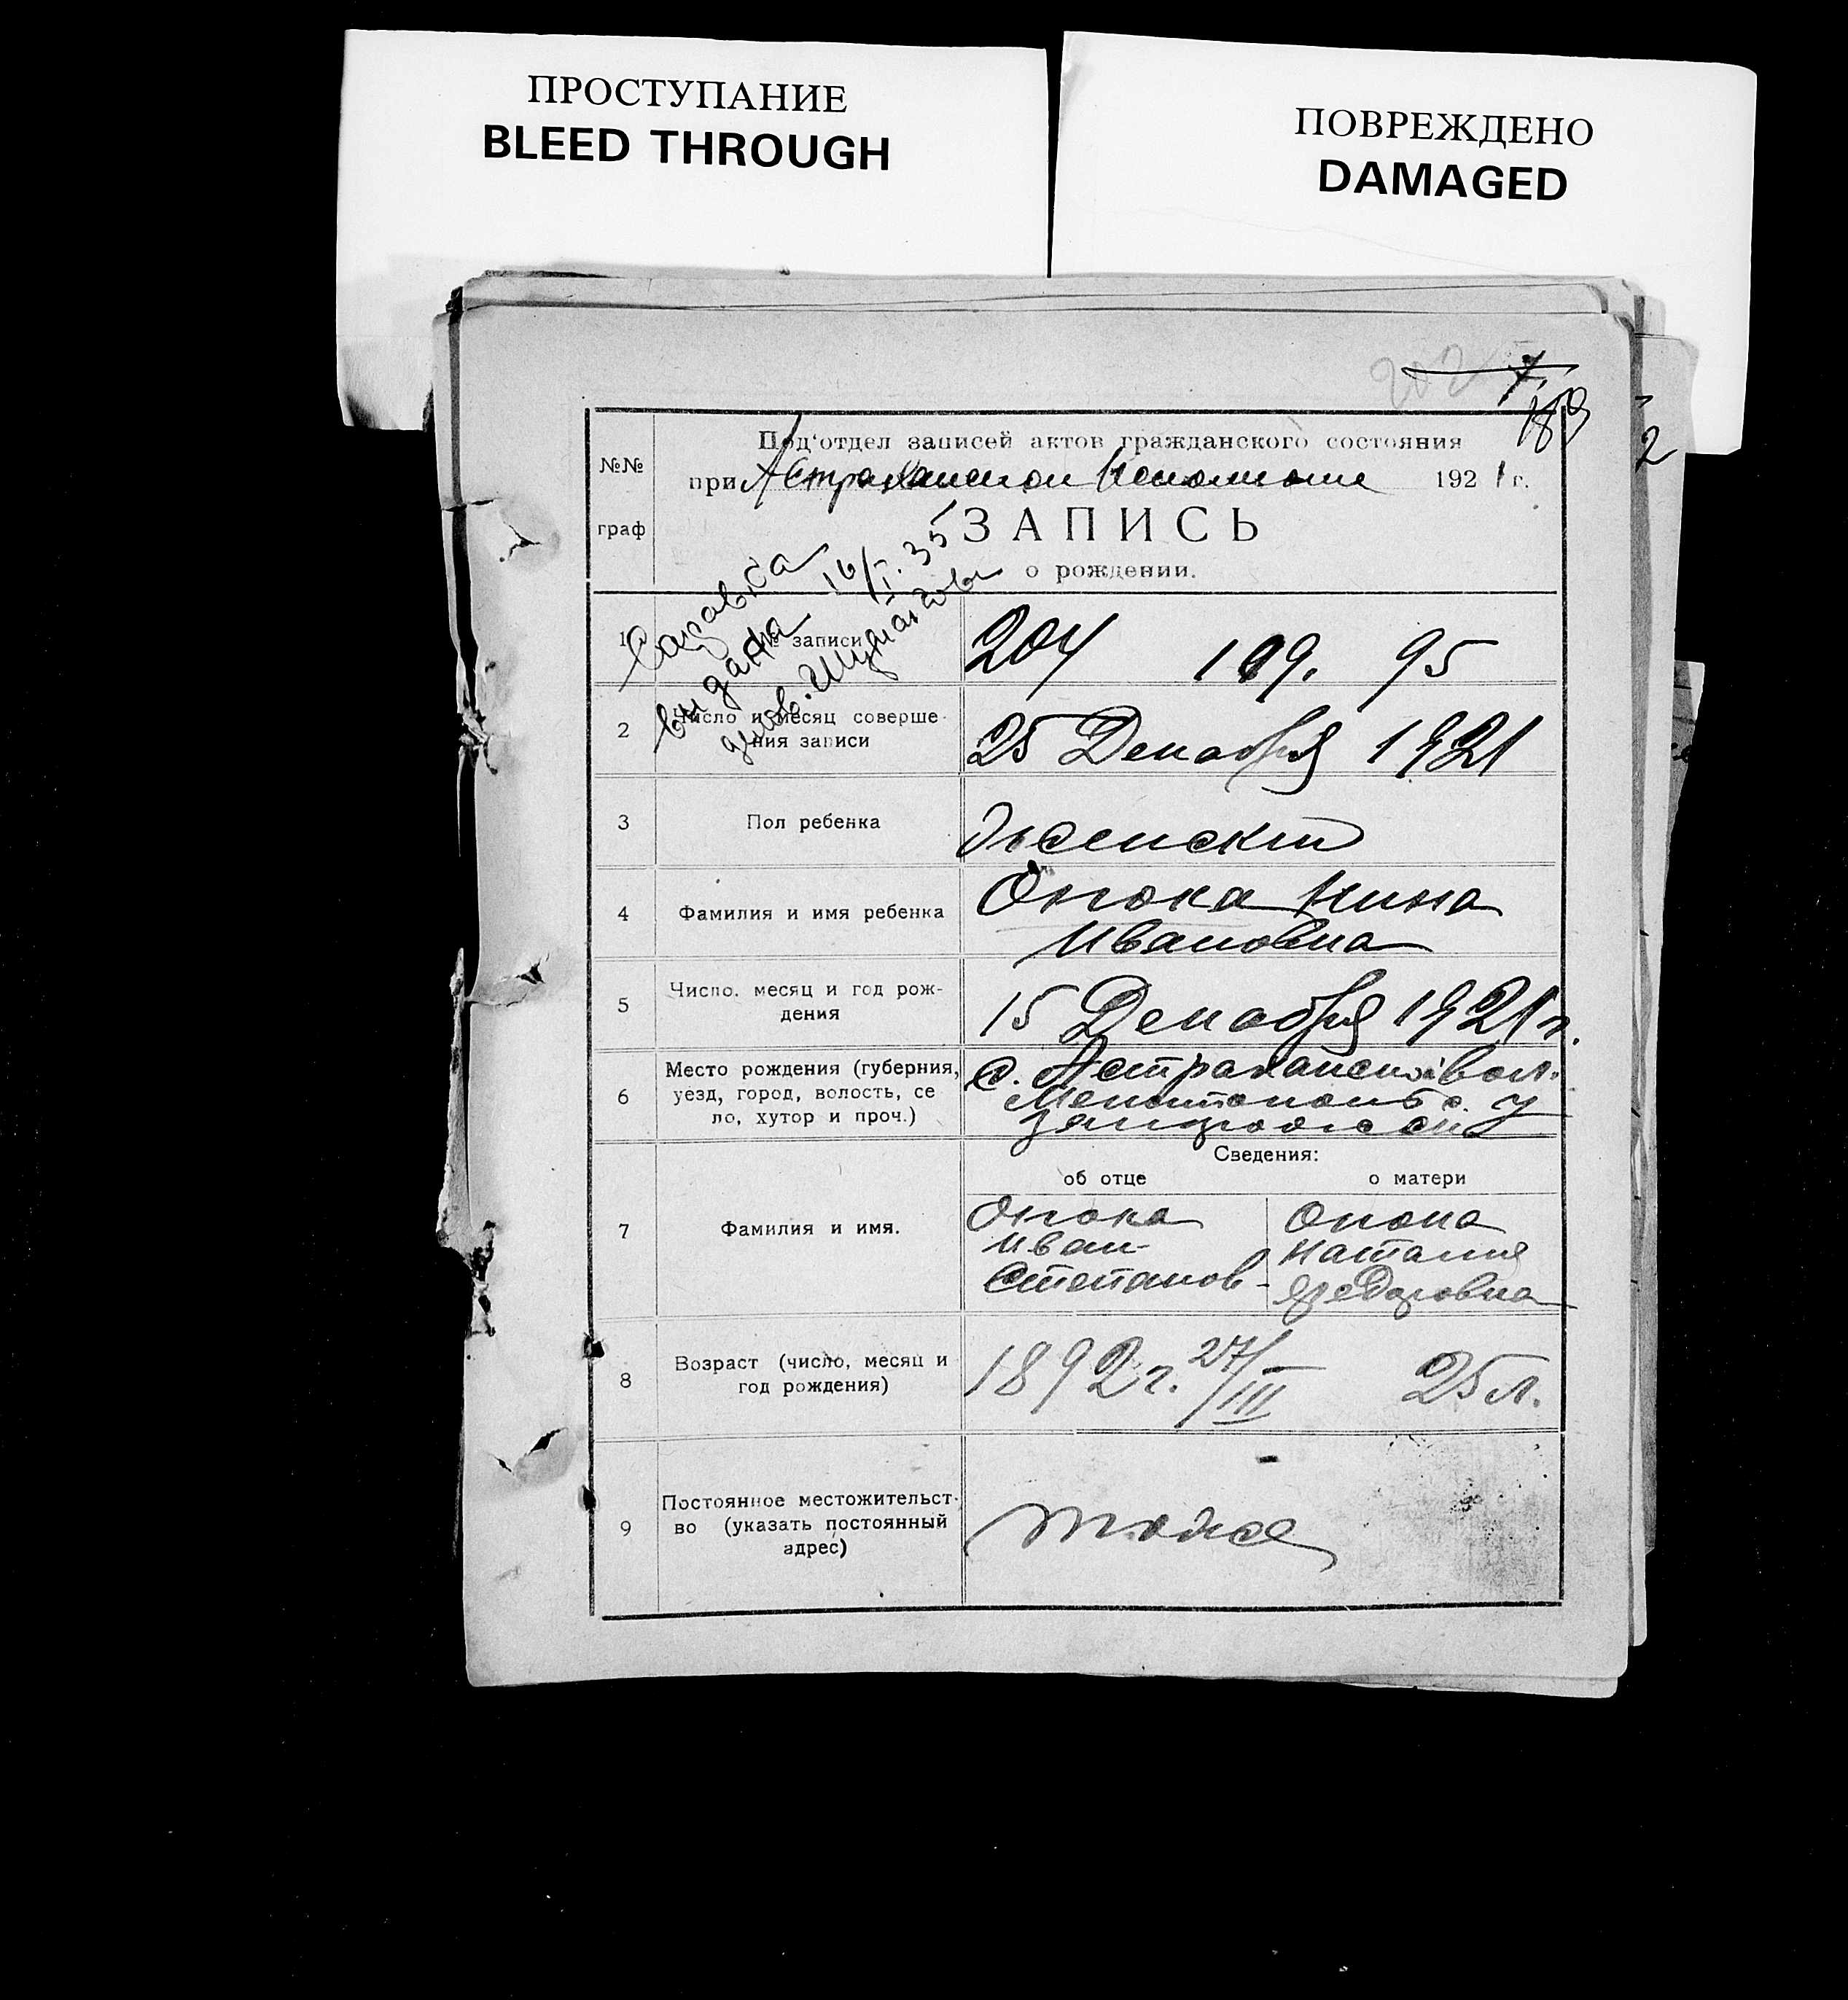 ПРОСТУПАНИЕ
BLEED THROUGH
ПОВРЕЖДЕНО
DAMAGED
202
189
2
№№
граф
Под'отдел записей актов гражданского состояния
при Астраханском 1921 г.
ЗАПИСЬ
о рождении.
выдана 16/I.35
1
№ записи
204 109. 95
2
Число и месяц соверше-
ния записи
25 Декабря 1921
3
Пол ребенка
Женский
4
Фамилия и имя ребенка
Опока Нина
Ивановна
5
Число. месяц и год рож-
дения
15 Декабря 1921 г.
6
Место рождения (губерния,
уезд, город, волость, се
ло, хутор и проч.)
с. Астраханской вол.
Мелитопольс. у
Запорожской
Сведения:
об отце
о матери
7
Фамилия и имя.
Опока
Иван
Степанов
Опока
Наталия
Федоровна
8
Возраст (число, месяц и
год рождения)
1892 г. 27/III
25 л.
9
Постоянное местожительст-
во (указать постоянный
адрес)
тоже